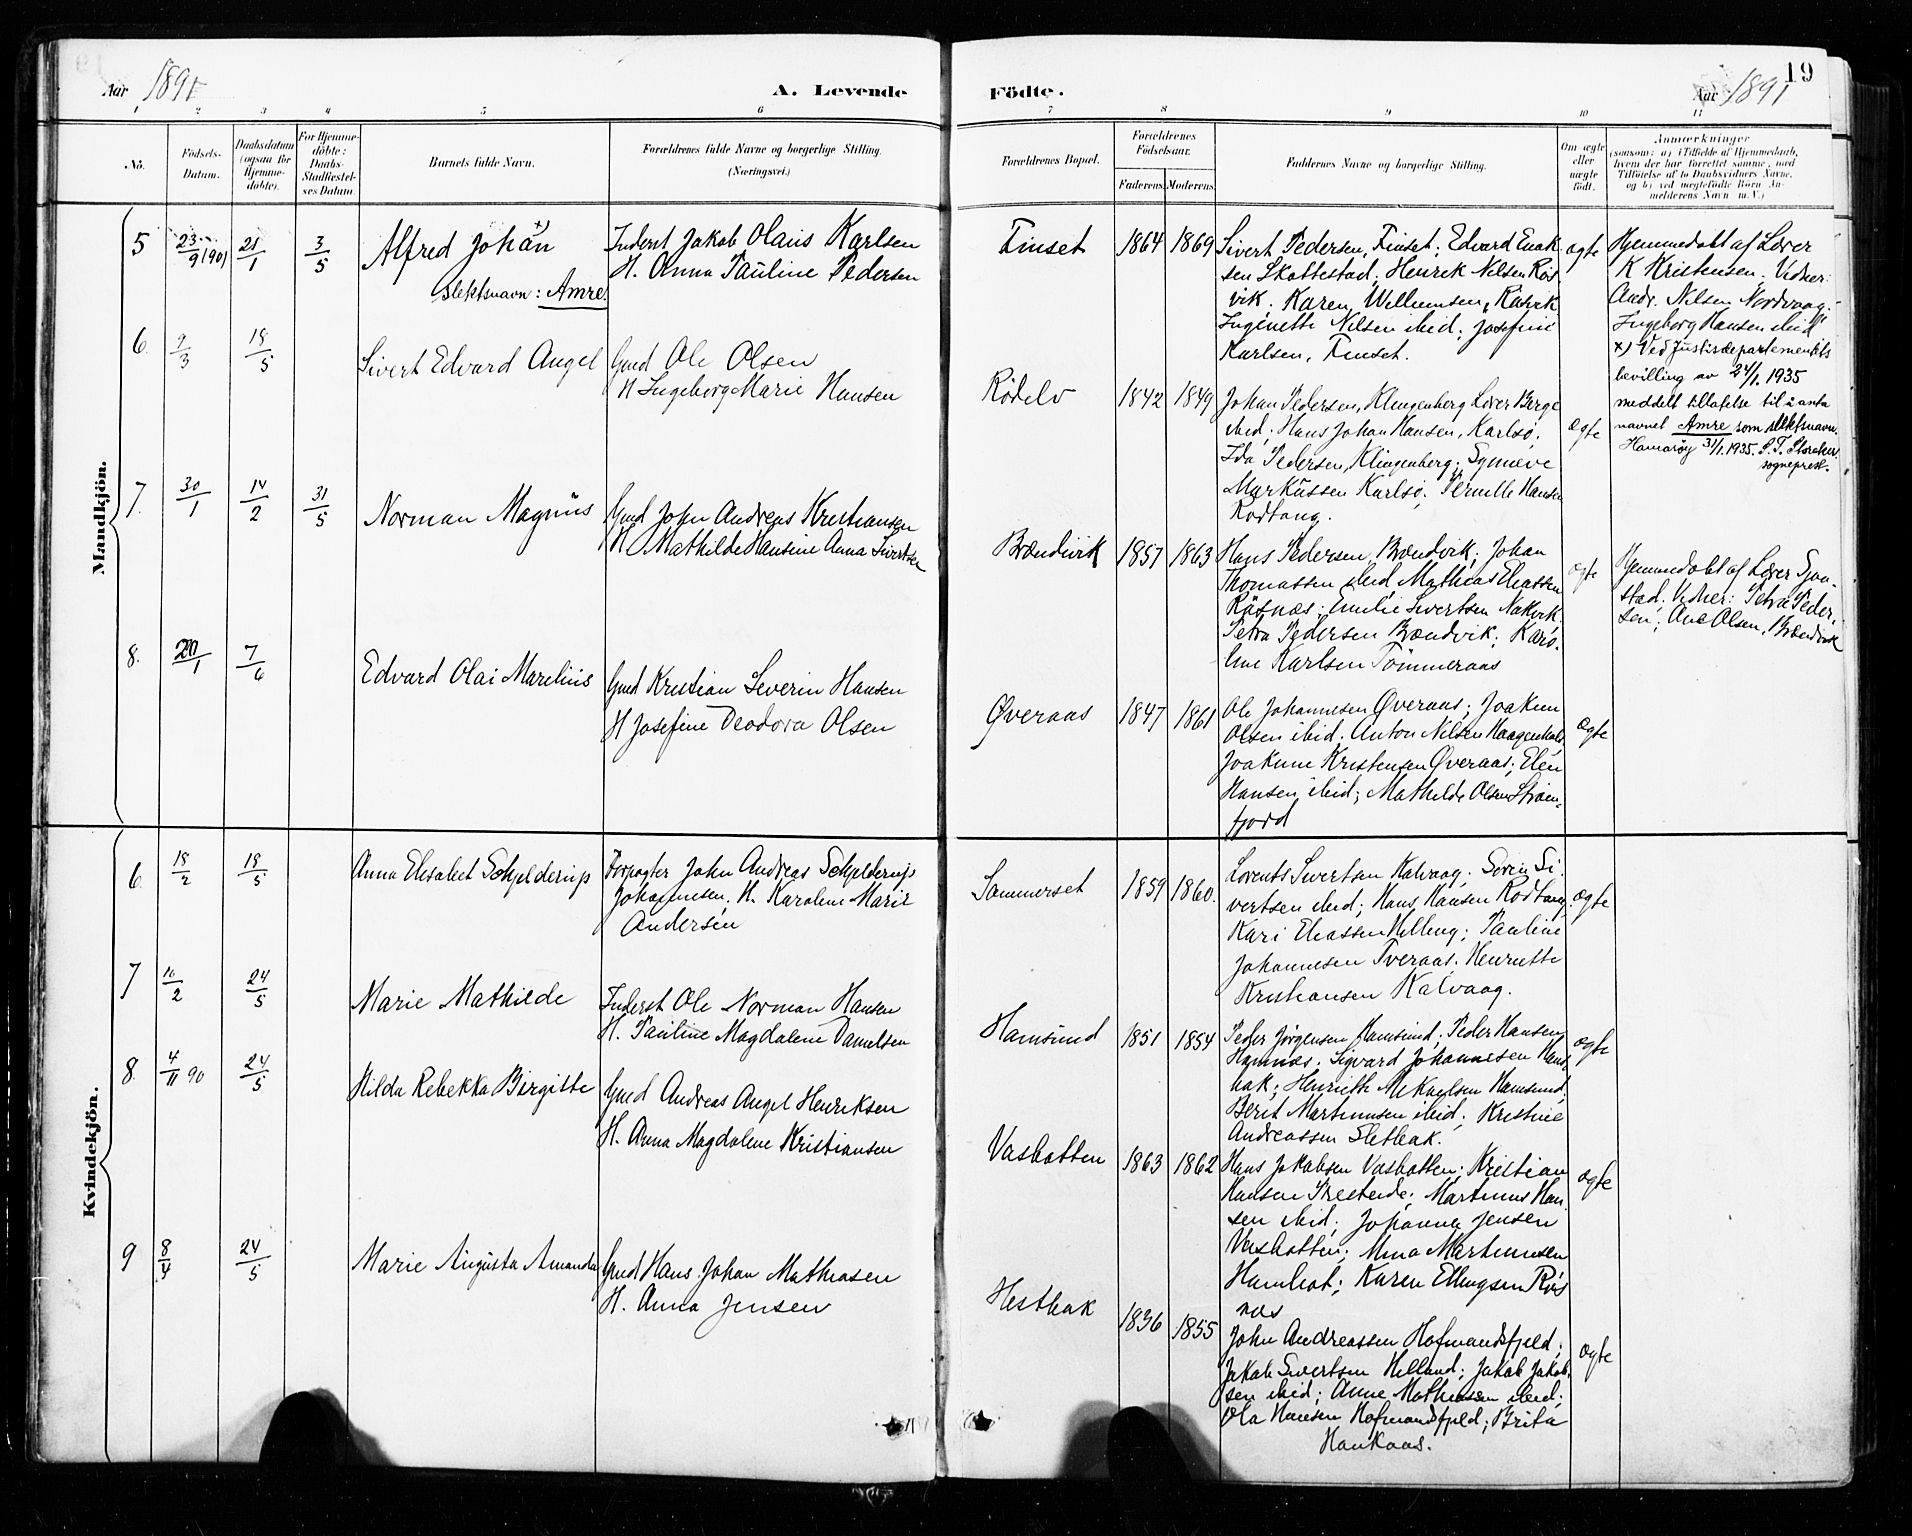 19
Aar 1891 A. Levende Födte. Aar 1891
1 2 3 4 5 6 7 8 9 10 11
No. Fødsels-Datum. Daabsdatum (ogsaa for Hjemmedøbte). For Hjemmedøbte: Daabs-Stadfæstelses Datum. Barnets fulde Navn. Forældrenes fulde Navne og borgerlige Stilling. (Næringsvei.) Forældrenes Bopæl. Forældrenes Fødselsaar. Faderens. Moderens. Faddernes Navne og borgerlige Stilling. Om ægte eller uægte født. Anmærkninger (saasom: a) i Tilfælde af Hjemmedaab, hvem der har forrettet samme, med Tilføielse af to Daabsvidners Navne, og b) ved uægtefødte Børn Anmelderens Navn m. V.)
Mandkjön.
5 23/9 (90) 21/1 3/5 Alfred Johan x)
slektsnavn: Amre.
Inderst Jakob Olaus Karlsen
H. Anna Pauline Pedersen
Finset 1864 1869
Sivert Pedersen, Finset; Edvard Enok
sen Skottestad; Henrik Nilsen Røs
vik. Karen Willumsen, Røsvik
Inginette Nilsen ibid; Josefine
Karlsen, Finset.
ægte
Hjemmedøbt af Lærer
K Kristensen. Vidner:
Andr. Nilsen Nordvaag,
Ingeborg Hansen ibid
x) Ved Justisdepartementets
bevilling av 24/1. 1935
meddelt tillatelse til å anta
navnet Amre som slektsnavn.
Hamarøy 31/1. 1935. S. T. Storaker
sogneprest.
6. 9/3 18/5 Sivert Edvard Angel
Gmd Ole Olsen
H Ingeborg Marie Hansen
Rødelv 1842 1849
Johan Pedersen, Klingenberg Lærer Berge
ibid; Hans Johan Hansen, Karlsø.
Ida Pedersen, Klingenberg; Synneve
Markussen Karlsø. Pernille Hansen
Rodtang.
ægte
7. 30/1 14/2 31/5 Norman Magnus
Gmd John Andreas Kristiansen
H Mathilde Hansine Anna Sivertsen
Brændvik 1857 1863
Hans Pedersen, Brændvik; Johan
Thomassen ibid, Mathias Eliassen
Røsnæs; Emilie Sivertsen Nakvik
Petra Pedersen Brændvik. Karo-
line Karlsen Tømmeraas
ægte
Hjemmedøbt af Lærer Sjaa-
stad. Vidner: Petra Peder-
sen, Ane Olsen, Brændvik
8. 20/1 7/6 Edvard Olai Marelius
Gmd Kristian Severin Hansen
H Josefine Deodora Olsen
Øveraas 1847 1861
Ole Johannesen Øveraas; Joakim
Olsen ibid. Anton Nilsen
Joakime Kristensen Øveraas; Elen
Hansen ibid; Mathilde Olsen Strøm-
fjord
ægte
Kvindekjön.
6. 18/2 18/5 Anna Elisabet Schjelderup
Forpagter John Andreas Schjelderup
Johannesen, H. Karoline Marie
Andersen
Sommerset 1859 1860.
Lorents Sivertsen Kalvaag; Søren Si
vertsen ibid; Hans Hansen Rodtang.
Kari Eliassen Helling; Pauline
Johannesen Tveraas. Henriette
Kristiansen Kalvaag.
ægte
7 16/2 24/5 Marie Mathilde
Inderst Ole Norman Hansen
H. Pauline Magdalene Danielsen
Hamsund 1851 1854
Peder Jørgensen Hamsund; Peder Hansen
Hamnæs; Sigvard Johannesen Hest
bak; Henrieth Mikaelsen Hamsund,
Berit Martinusen ibid; Kristine
Andreassen Sletbak.
ægte
8. 4/11 90 24/5 Hilda Rebekka Birgitte
Gmd Andreas Angel Henriksen
H. Anna Magdalene Kristiansen
Vasbotten 1863 1862
Hans Jakobsen Vasbotten; Kristian
Hansen Presteide; Martinus Han
sen ibid; Johanna Jensen
Vasbotten; Mina Martinusen
Karen Ellingsen Røs
næs
ægte
9 8/4 24/5 Marie Augusta Amanda
Gmd Hans Johan Mathiasen
H. Anna Jensen
Hestbak 1836 1855
John Andreassen Hofmandsfjeld;
Jakob Sivertsen Helland; Jakob Jakob-
sen ibid; Anne Mathiesen ibid;
Ola Hansen Hofmandsfjeld; Brita
Haukaas.
ægte